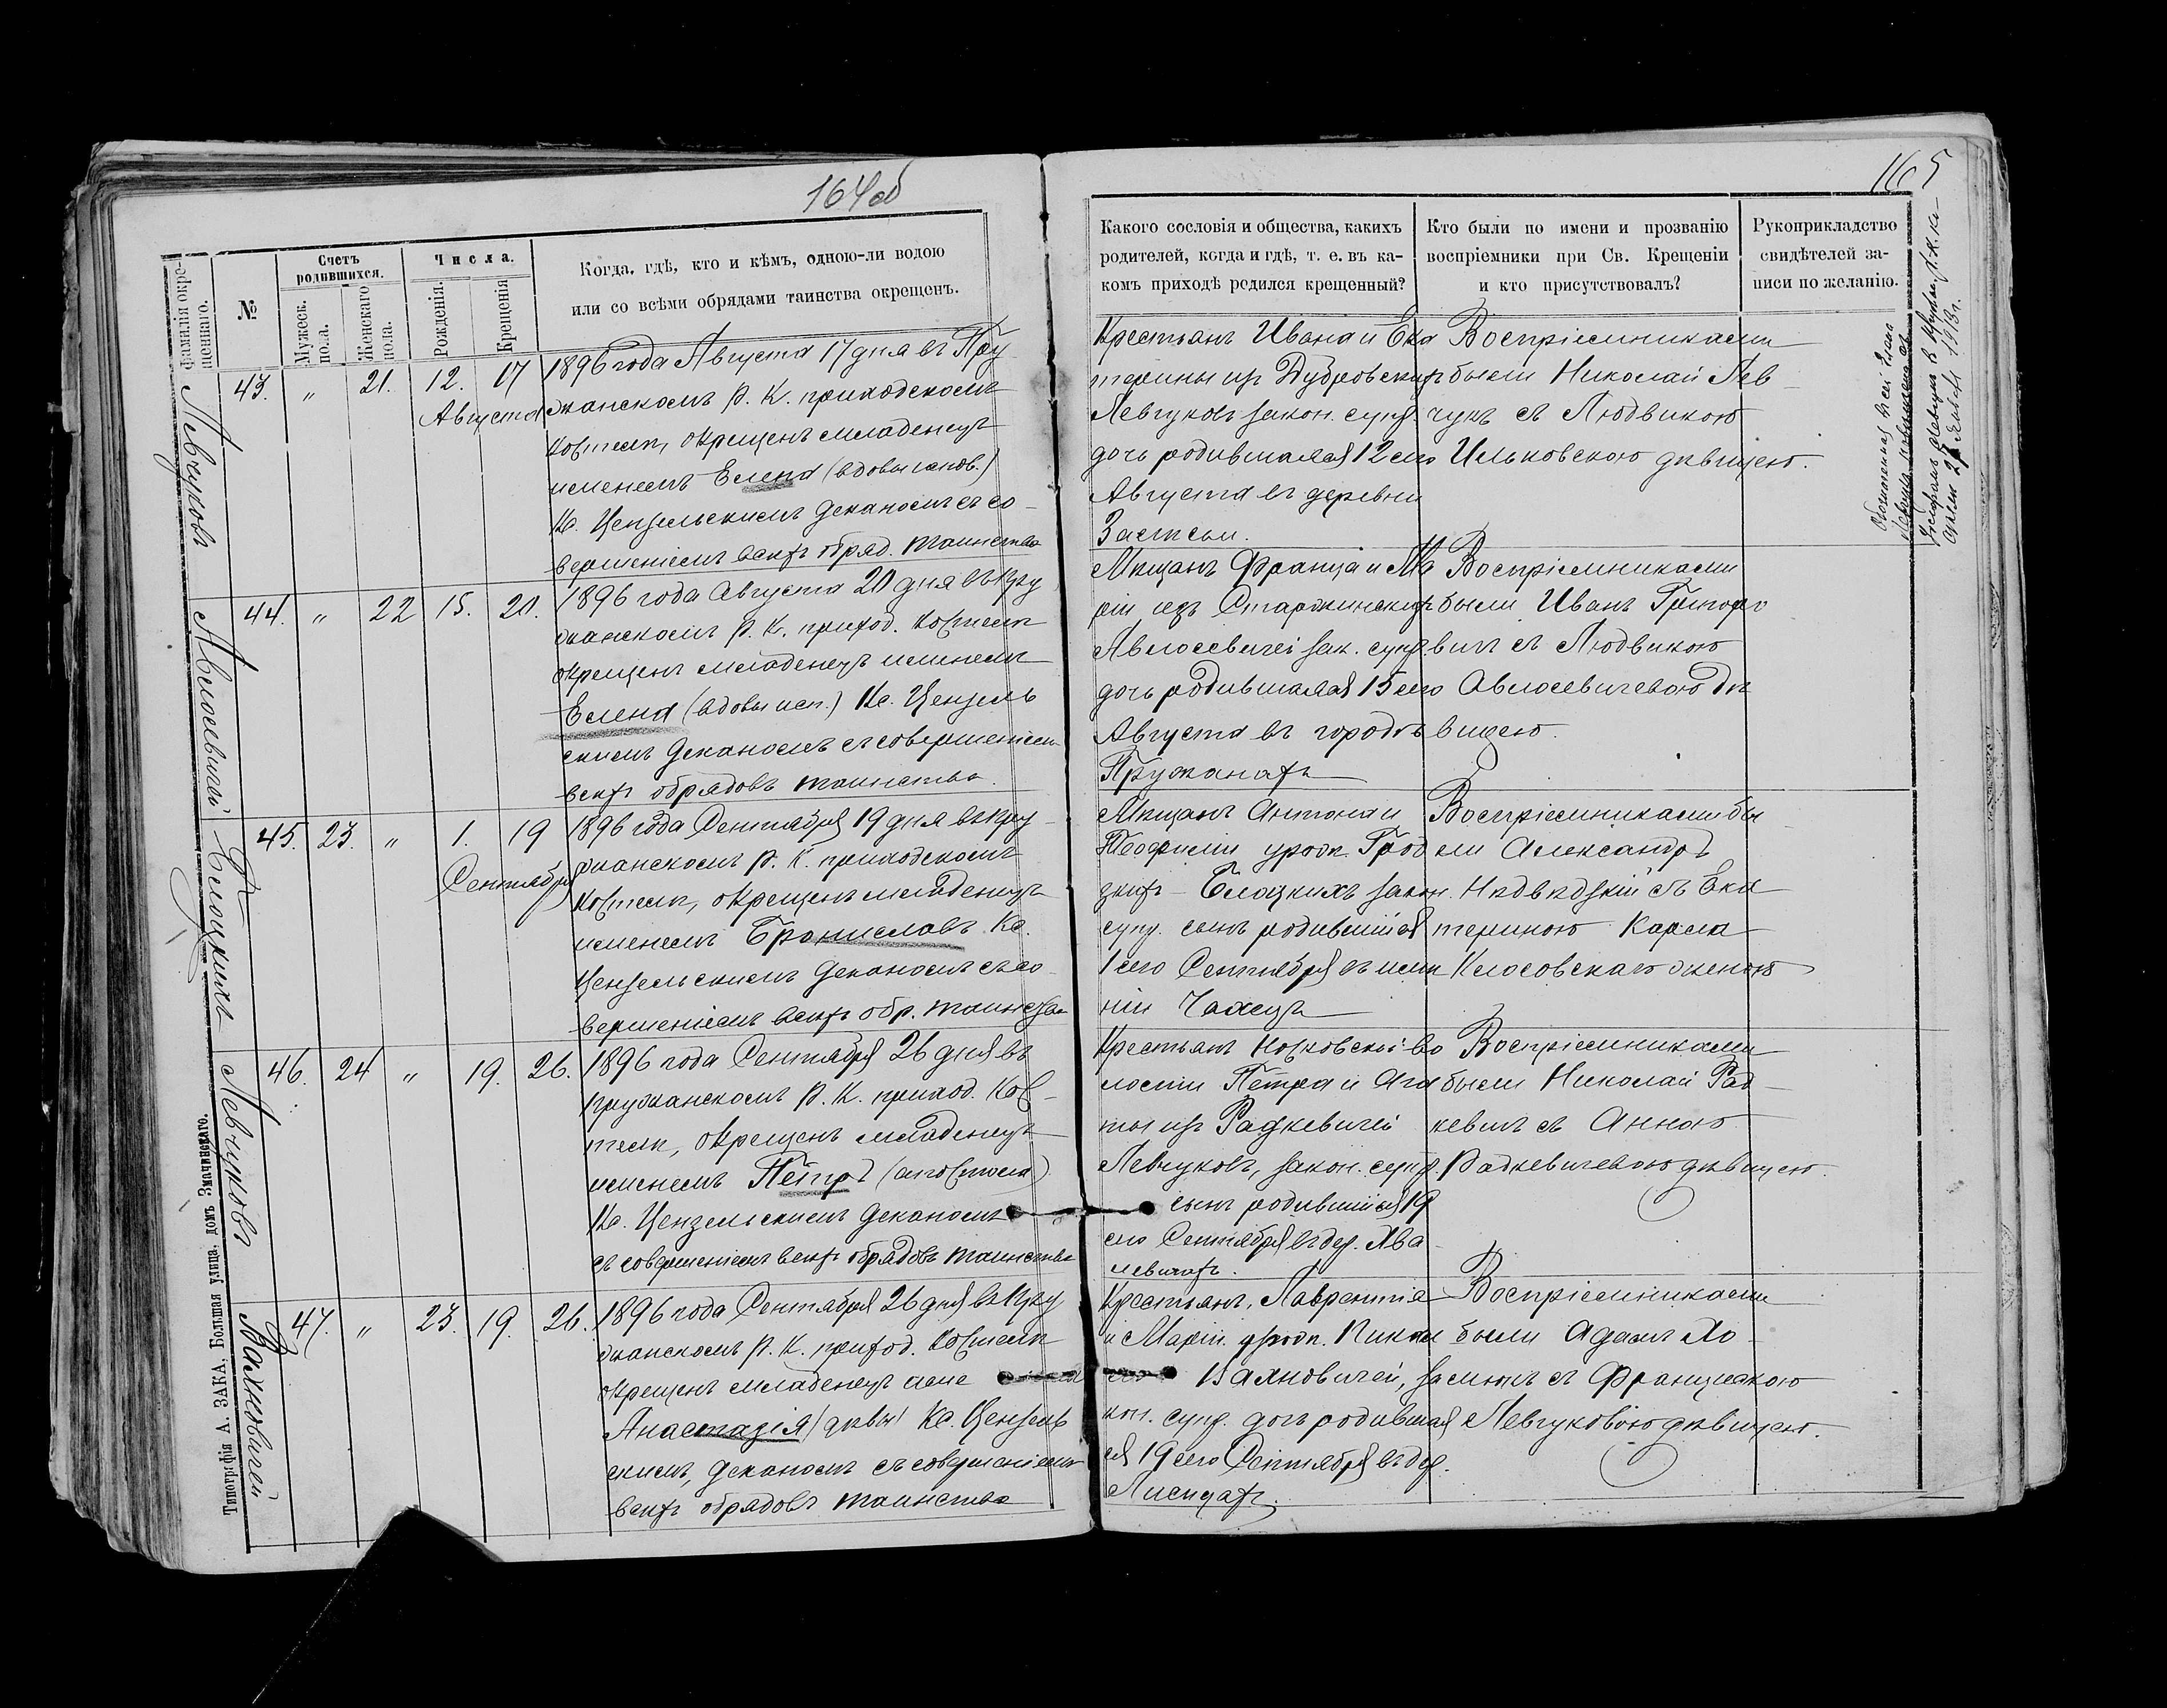 164об
Фамилія окре-
щеннаго.
№
Счетъ
родившихся.
Мужеск.
пола.
Женскаго
пола.
Числа.
Рожденія.
Крещенія
Когда, гдѣ, кто и кѣмъ, одною-ли водою
или со всѣми обрядами таинства окрещенъ.
Левчуковъ
43. " 21. 12. 17
Августа
1896 года Августа 17 дня въ Пру
жанскомъ Р. К. приходскомъ
костелѣ, окрещенъ младенецъ
именемъ Елена (вдовы)
Кс. Цензельскимъ деканомъ съ со-
вершеніемъ всѣхъ обряд. таинства
44. " 22 15. 20.
1896 года Августа 20 дня въ Пру
жанскомъ Р. К. приход. костелѣ
окрещенъ младенецъ именемъ
Елена (вдовы исп.) Кс. Цензель
скимъ деканомъ съ совершеніем
всѣхъ обрядовъ таинства.
Белоцкихъ
45. 23. " 1. 19
Сентября
1896 года Сентября 19 дня въ Пру
жанскомъ Р. К. приходскомъ
костелѣ, окрещенъ младенецъ
именемъ Брониславъ Кс.
Цензельскимъ деканомъ съ со-
вершеніемъ всѣхъ обр. таинства
Левчуковъ
46. 24 " 19. 26.
1896 года Сентября 26 дня въ
Пружанскомъ Р. К. приход. кос-
телѣ, окрещенъ младенецъ
именемъ Петръ (апостола)
Кс. Цензельскимъ деканомъ
съ совершеніемъ всѣхъ обрядовъ таинства
Вахновичей
47. " 23. 19. 26.
1896 года Сентября 26 дня въ Пру
жанскомъ Р. К. приход. костелѣ
окрещенъ младенецъ име
Анастазія (дѣвы) Кс. Цензель
скимъ, деканомъ съ совершеніемъ
всѣхъ обрядовъ таинства
Типографія А. ЗАКА, Большая улица, домъ Змачинскаго.
165
Какого сословія и общества, какихъ
родителей, когда и гдѣ, т. е. въ ка-
комъ приходѣ родился крещенный?
Кто были по имени и прозванію
воспріемники при Св. Крещеніи
и кто присутствовалъ?
Рукоприкладство
свидѣтелей за-
писи по желанію.
Крестьянъ Ивана и Ека
терины изъ Дубровскихъ
Левчуковъ закон. супр.
дочь родившаяся 12 сего
Августа въ деревни
Воспріемниками
были Николай Лев
чукъ съ Людвикою
Ильковскою дѣвицею.
Мѣщанъ Франца и Ма
ріи изъ
зак. супр.
дочь родившаяся 15 сего
Августа въ городѣ
Пружанахъ
Воспріемниками
были Иванъ Григоро
вичъ съ Людвикою
дѣ
вицею.
Мѣщанъ Антона и
Теофиліи урож. Грод
зкихъ - Белоцкихъ закон.
супр. сынъ родившійся
1 сего Сентября въ имѣ
ніи Чахецъ
Воспріемниками бы
ли Александръ
съ Ека
териною Карла
Клосовскаго женою
Крестьянъ во
лости Петра и Ага
ты изъ Радкевичей
Левчуковъ, закон. супр.
сынъ родившійся 19
сего Сентября въ дер. Хва
левичахъ.
Воспріемниками
были Николай Рад-
кевичъ съ Анною
Радкевичевою дѣвицею.
Крестьянъ, Лаврентія
и Маріи урож.
Вахновичей, за
кон. супр. дочь родившая
ся 19 сего Сентября въ дер.
Лисицахъ.
Воспріемниками
были Адамъ
съ Францишкою
Левчуковою дѣвицею.
1913 г.